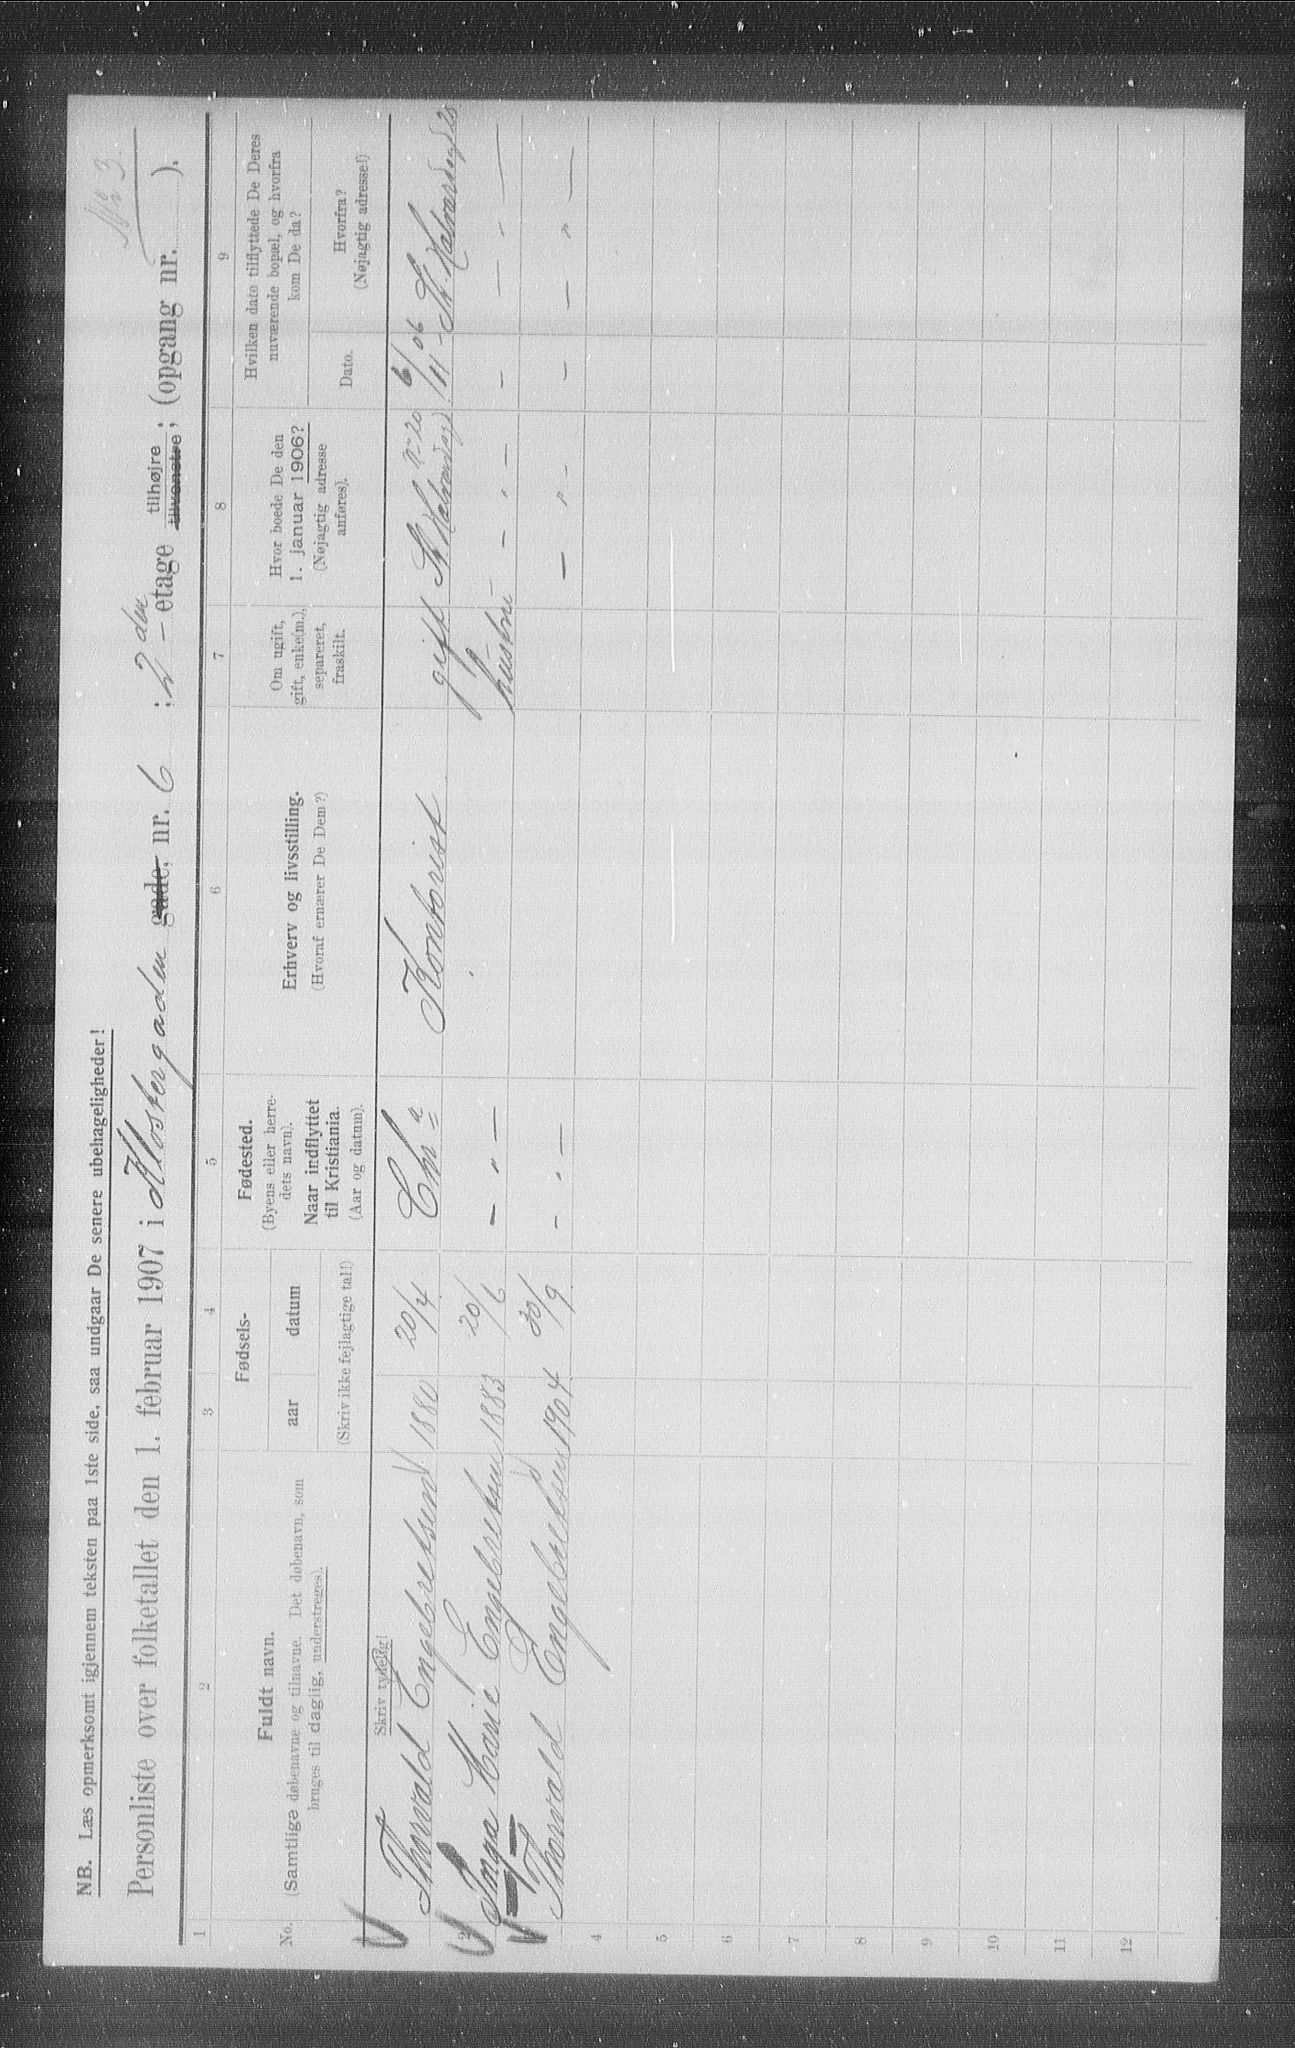 Nr 3.
NB. Læs opmerksomt igjennem teksten paa 1ste side, saa undgaar De senere ubehageligheder!
Personliste over folketallet den 1. februar 1907 i Klostergaden gade, nr. 6 ; 2den - etage tilhøjre tilvenstre; (opgang nr. ).
1 2 3 4 5 6 7 8 9
No.
Fuldt navn.
(Samtlige døbenavne og tilnavne. Det døbenavn, som
bruges til daglig, understreges).
Skriv tydelig!
Fødsels-
aar datum
(Skriv ikke fejlagtige tal!)
Fødested.
(Byens eller herre-
dets navn).
Naar indflyttet
til Kristiania.
(Aar og datum).
Erhverv og livsstilling.
(Hvoraf ernærer De Dem?)
Om ugift,
gift, enke(m.),
separeret,
fraskilt.
Hvor boede De den
1. januar 1906?
(Nøjagtig adresse
anføres).
Hvilken dato tilflyttede De Deres
nuværende bopæl, og hvorfra
kom De da?
Dato.
Hvorfra?
(Nøjagtig adresse!)
Thorvald Engebretsen 1880 20/4 Chr a Kontorist gift St. Halvardsgd 20 6/11 06 St. Halvardsgd 20
2 Inga Marie Engebretsen 1883 20/6 - " - hustru - " - - - " -
Thorvald Engebretsen 1904 30/9 - " - - " - - - " -
4
5
6
7
8
9
10
11
12